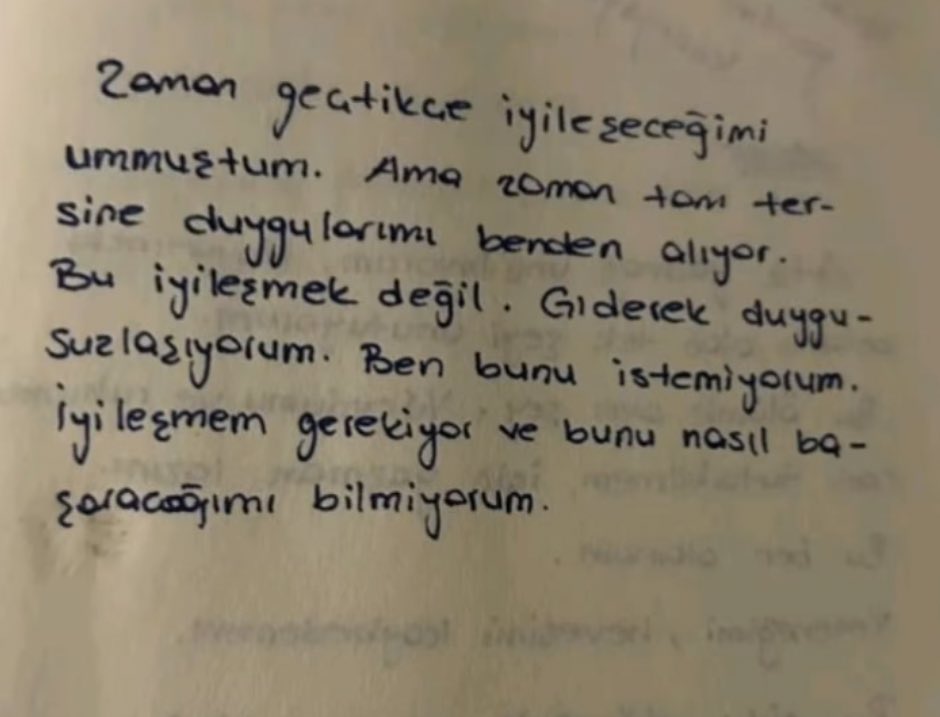 Zaman geçtikçe iyileşeceğimi
ummuştum. Ama zaman tam ter-
sine duygularımı benden alıyor.
Bu iyileşmek değil. Giderek duygu-
suzlaşıyorum. Ben bunu istemiyorum.
iyileşmem gerekiyor ve bunu nasıl ba-
şaracağımı bilmiyorum.